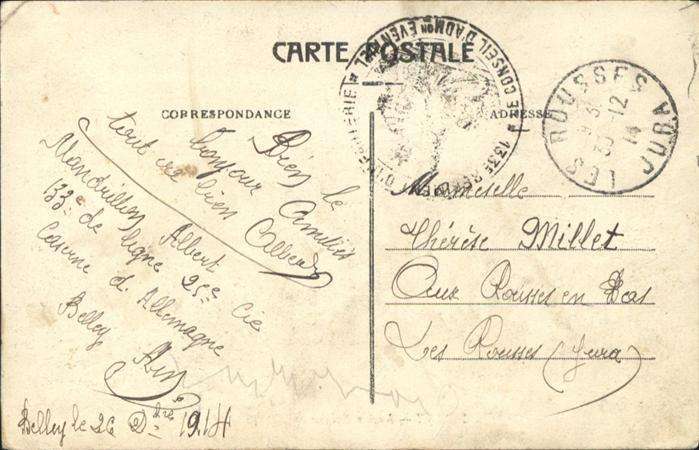 CARTE POSTALE
CORRESPONDANCE
ADRESSE
133E RÉG D'INFANTERIE CONSEIL D'ADMon EVENTUEL
LES ROUSSES JURA
30 -12
14
Bien le
bonjour
tout va bien Albert
Mandrillon Albert
133e de ligne 25e Cie
Caserne d. Allemagne
Belley Ain
Belley le 26 Dbre 1914
Mameselle
Thérèse Millet
Aux Rousses en Bas
Les Rousses (Jura)